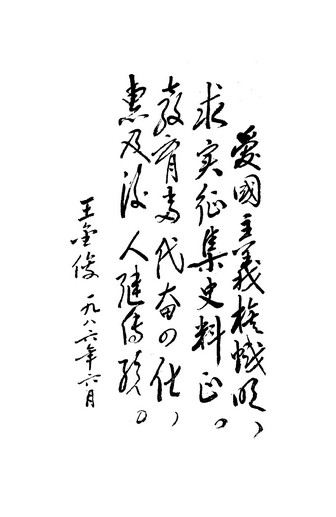 愛國主義旗幟明，
求实征集史料正。
教育代奋四化，
惠及後人继傳。
王金俊 一九八六年六月